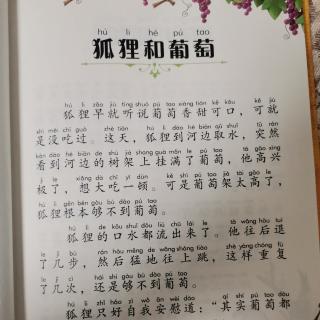 hú lí hé pú tao
狐狸和葡萄
hú li zǎo jiù tīng shuō pú tao xiāng tián kě kǒu kě jiù
狐狸早就听说葡萄香甜可口，可就
shì méi chī guò zhè tiān hú li dào hé biān qǔ shuǐ tū rán
是没吃过。这天，狐狸到河边取水，突然
kàn dào hé biān de shù jià shàng guà mǎn le pú tao tā gāo xìng
看到河边的树架上挂满了葡萄，他高兴
jí le xiǎng dà chī yī dùn kě shì pú tao jià tài gāo le
极了，想大吃一顿。可是葡萄架太高了，
hú li gēn běn gòu bù dào pú tao
狐狸根本够不到葡萄。
hú li de kǒu shuǐ dōu liú chū lái le tā wǎng hòu tuì
狐狸的口水都流出来了。他往后退
le jǐ bù rán hòu měng de wǎng shàng tiào zhè yàng chóng fù
了几步，然后猛地往上跳，这样重复
le jǐ cì hái shì gòu bù dào pú tao
了几次，还是够不到葡萄。
hú li zhǐ hǎo zì wǒ ān wèi dào qí shí pú tao dōu
狐狸只好自我安慰道：“其实葡萄都